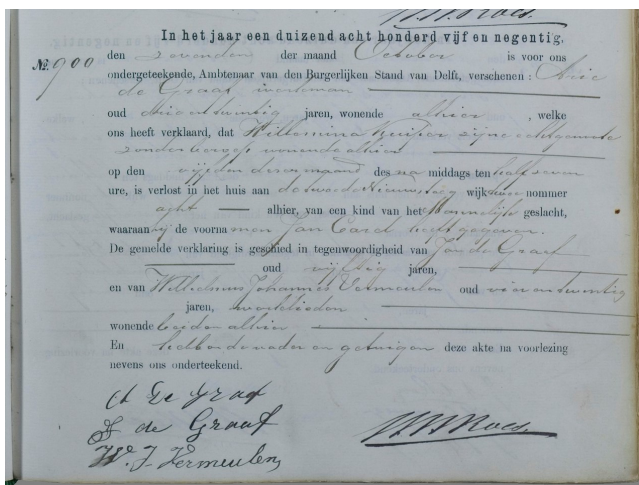 In het jaar een duizend acht honderd vijf en negentig,
No. 900
den zevenden der maand October is voor ons
ondergeteekende, Ambtenaar van den Burgerlijken Stand van Delft, verschenen: Arie
de Graaf, werkman
oud drieentwintig jaren, wonende alhier, welke
ons heeft verklaard, dat Willemina Kuiper zijne echtgenoote
zonder beroep wonende alhier
op den vijfden dezer maand des na middags ten half zeven
ure, is verlost in het huis aan de tweede Nieuwsteeg wijk twee nommer
acht alhier, van een kind van het Mannelijk geslacht,
waaraan hij de voornamen Jan Carel heeft gegeven.
De gemelde verklaring is geschied in tegenwoordigheid van Jan de Graaf
oud vijftig jaren,
en van Wilhelmus Johannes Vermeulen oud vierentwintig
jaren, werklieden
wonende beiden alhier
En hebben de vader en getuigen deze akte na voorlezing
nevens ons onderteekend.
A de Graaf
J de Graaf
W. J. Vermeulen